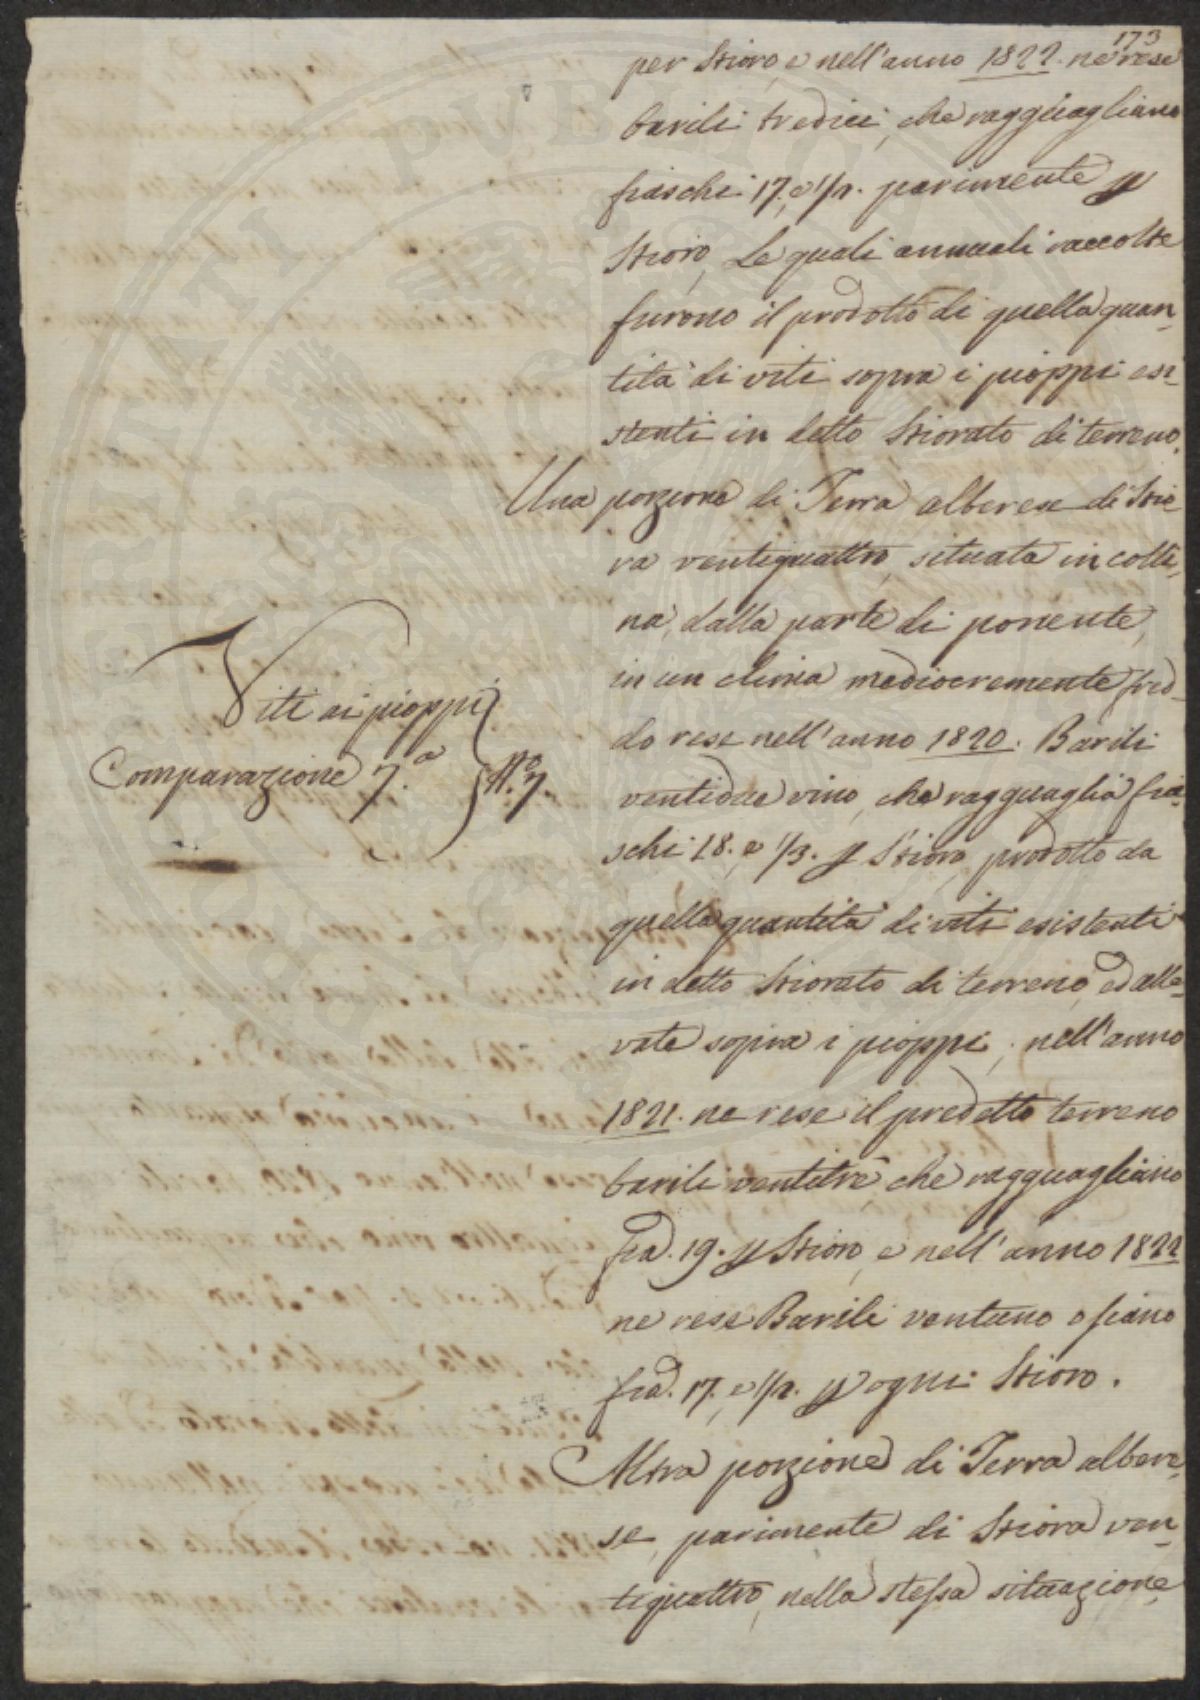 173
per Stioro, e nell'anno 1822. ne rese
barili tredici, che ragguagliano
fiaschi 17. e 1/2. parimente p
Stioro, Le quali annuali raccolte
furono il prodotto di quella quan-
tità di viti sopra i pioppi esi-
stenti in detto Stiorato di terreno.
Una porzione di Terra alberese di Stio
ra ventiquattro, situata in colli-
na, dalla parte di ponente,
in un clima mediocremente fred-
do rese nell'anno 1820. Barili
ventidue vino, che ragguaglia fia-
schi 18. e 1/3. p Stioro, prodotto da
quella quantità di viti esistenti
in detto Stiorato di terreno, ed alle-
vate sopra i pioppi; nell'anno
1821. ne rese il predetto terreno
barili ventitrè che ragguagliano
fia. 19. p Stioro, e nell'anno 1822
ne rese Barili ventuno o siano
fia. 17. e 1/2. p ogni Stioro.
Altra porzione di Terra albere-
se, parimente di Stiora ven-
tiquattro, nella stessa situazione
Viti ai pioppi
Comparazione 7.a N.o 7.
PUBLICAE